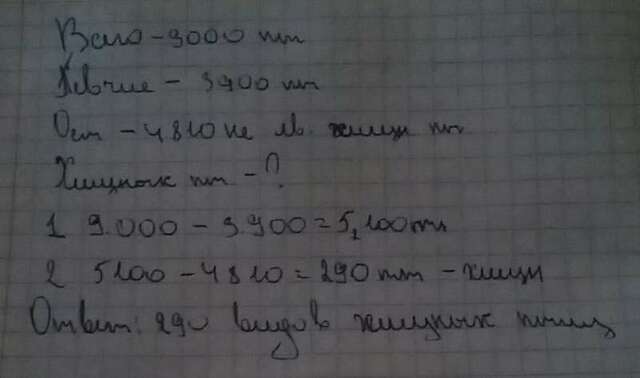 Всего - 9000 пт
Певчие - 3900 пт
Ост - 4810 не яв. хищн пт
Хищных пт - ?
1 9.000 - 3.900 = 5,100 пт
2 5100 - 4810 = 290 пт - хищн
Ответ: 290 видов хищных птиц